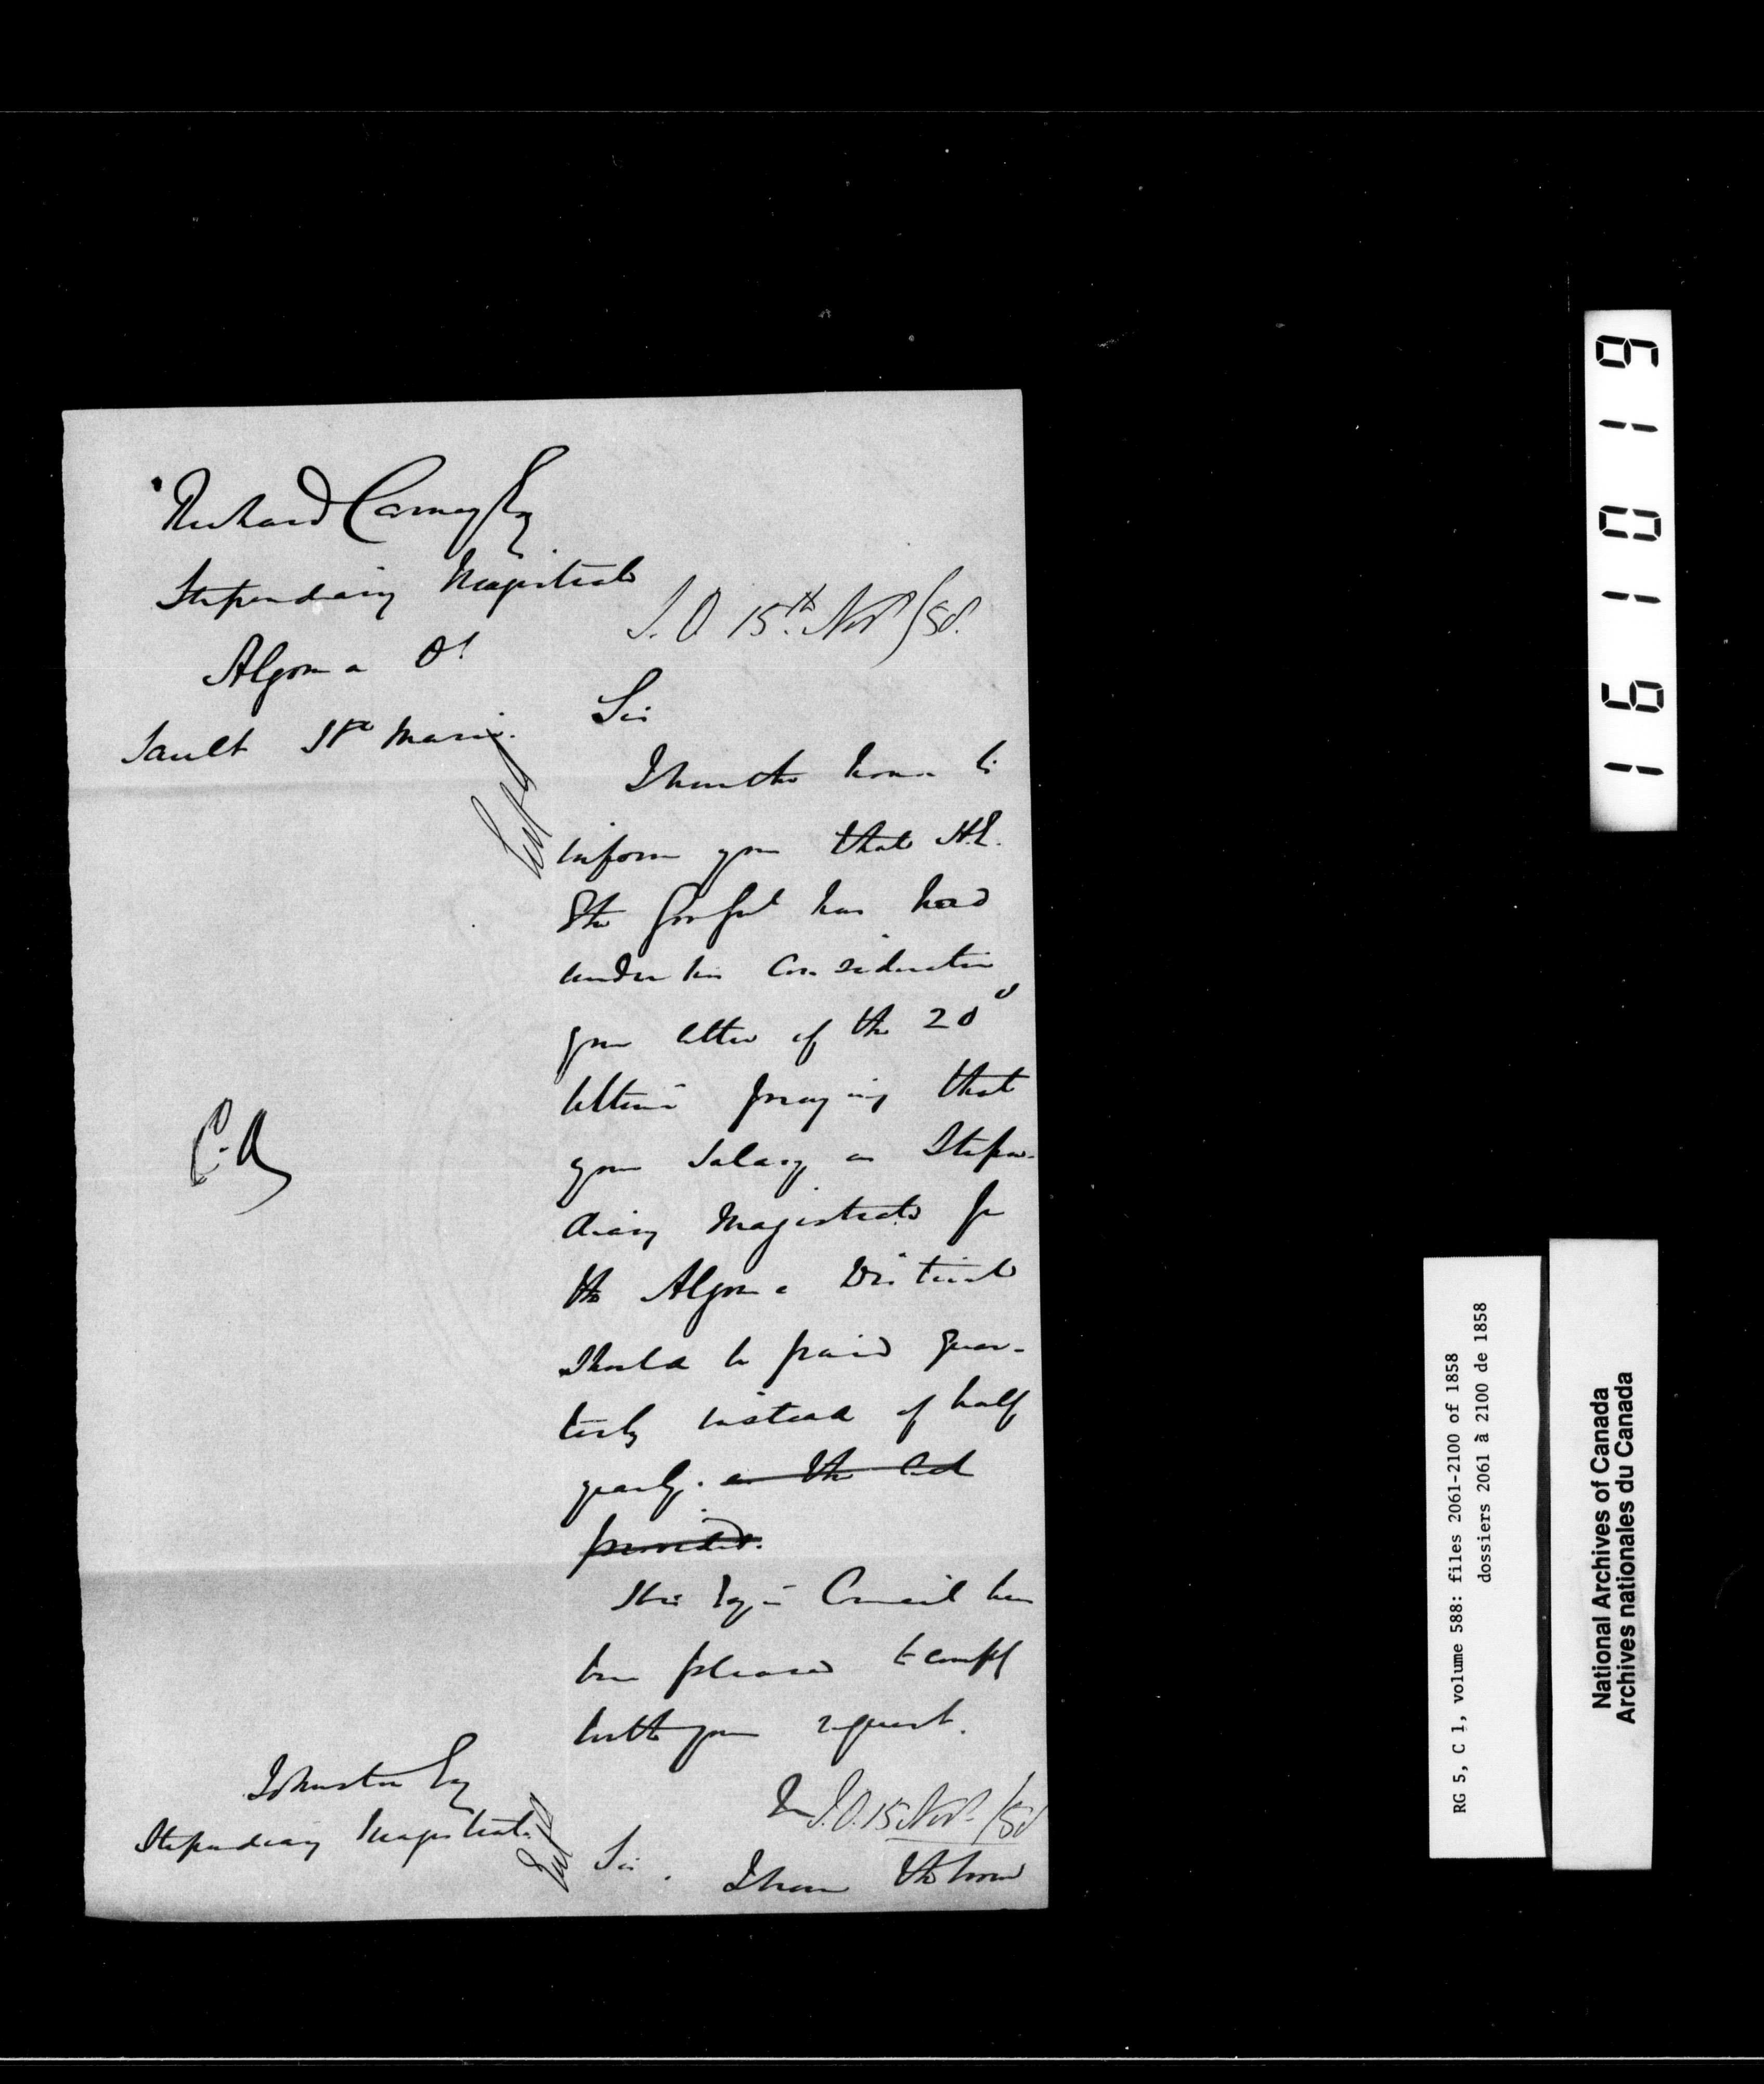 Richard Carney Esq
Stipendiary Magistrate
Algoma Dt
Sault Ste Marie.
S. O. 15th. Novr /58.
Sir
I have the honor to
inform you that H.E.
The Gov Genl has had
under his Consideration
your letter of the 20th
ultimo praying that
your Salary as Stipen-
diary Magistrate for
the Algoma District
Should be paid quar-
terly instead of half
yearly. as the Act
provided.
His Exy in Council has
been pleased to comply
with your request.
C.A
Johnston Esq
Stipendiary Magistrate
S.O. 15 Novr. /58
Sir. I have the honor
161019
RG 5, C 1, volume 588: files 2061-2100 of 1858
dossiers 2061 à 2100 de 1858
National Archives of Canada
Archives nationales du Canada